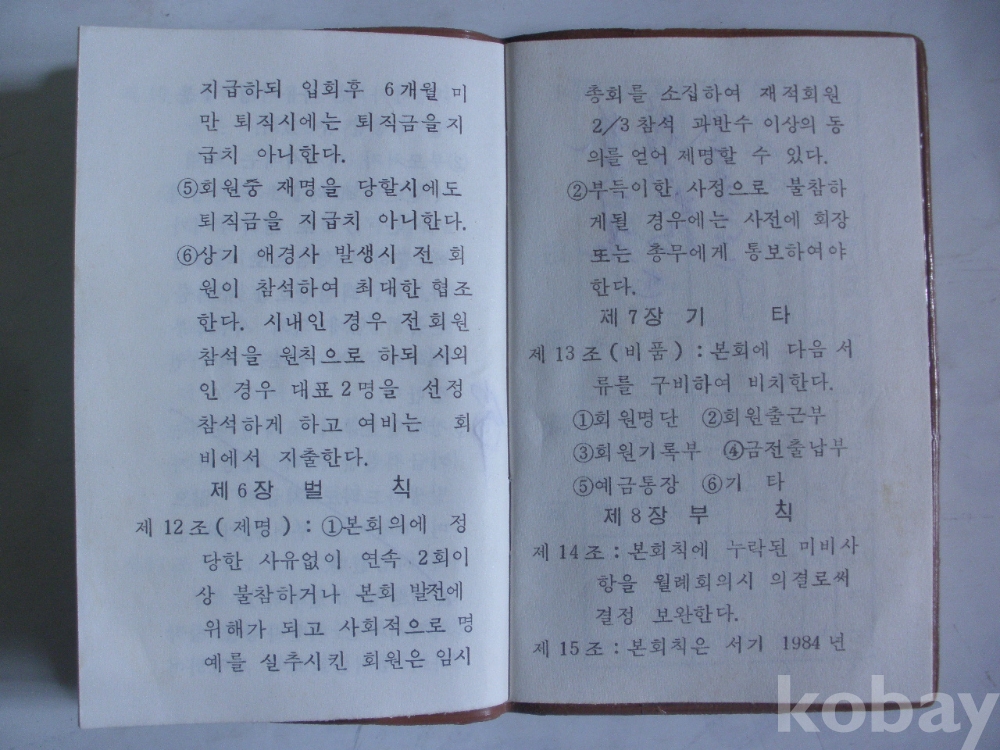 지급하되 입회후 6개월 미
만 퇴직시에는 퇴직금을지
급치 아니한다.
⑤회원중 재명을 당할시에도
퇴직금을 지급치 아니한다.
⑥상기 애경사 발생시 전 회
원이 참석하여 최대한 협조
한다. 시내인 경우 전회원
참석을 원칙으로 하되 시외
인 경우 대표 2명을 선정
참석하게 하고 여비는 회
비에서 지출한다.
제 6 장 벌 칙
제 12 조 ( 제명 ) : ①본회의에 정
당한 사유없이 연속 2회이
상 불참하거나 본회 발전에
위해가 되고 사회적으로 명
예를 실추시킨 회원은 임시
총회를 소집하여 재적회원
2/3 참석 과반수 이상의 동
의를 얻어 제명할 수 있다.
②부득이한 사정으로 불참하
게될 경우에는 사전에 회장
또는 총무에게 통보하여야
한다.
제 7 장 기 타
제 13 조 ( 비품 ) : 본회에 다음 서
류를 구비하여 비치한다.
①회원명단 ②회원출근부
③회원기록부 ④금전출납부
⑤예금통장 ⑥기 타
제 8 장 부 칙
제 14 조 : 본회칙에 누락된 미비사
항을 월례회의시 의결로써
결정 보완한다.
제 15 조 : 본회칙은 서기 1984 년
kobay